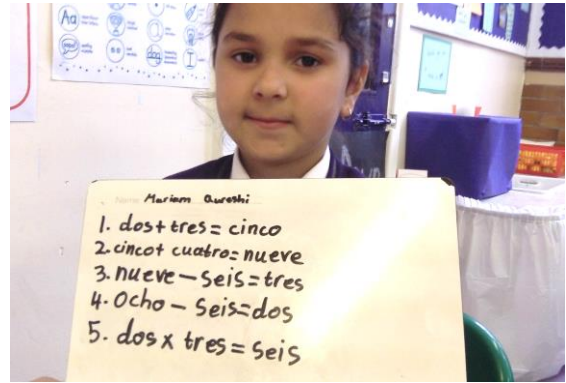 Aa
dog
I
Name Mariam Qureshi
1. dos + tres = cinco
2. cinco + cuatro = nueve
3. nueve - seis = tres
4. Ocho - Seis = dos
5. dos x tres = seis